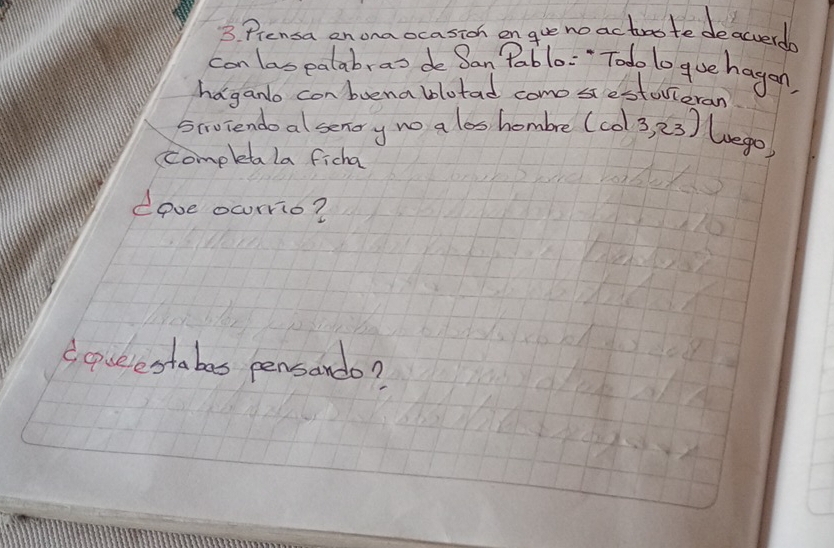 3. Piensa en ona ocasión en que no actuaste de acuerdo
con las palabras de San Pablo: "Todo lo que hagan,
háganlo con buena blutad como si estuvieran
sirviendo al señor y no a los hombre (col 3,23) luego,
completa la ficha
¿Que ocurrio?
¿que estabas pensando?